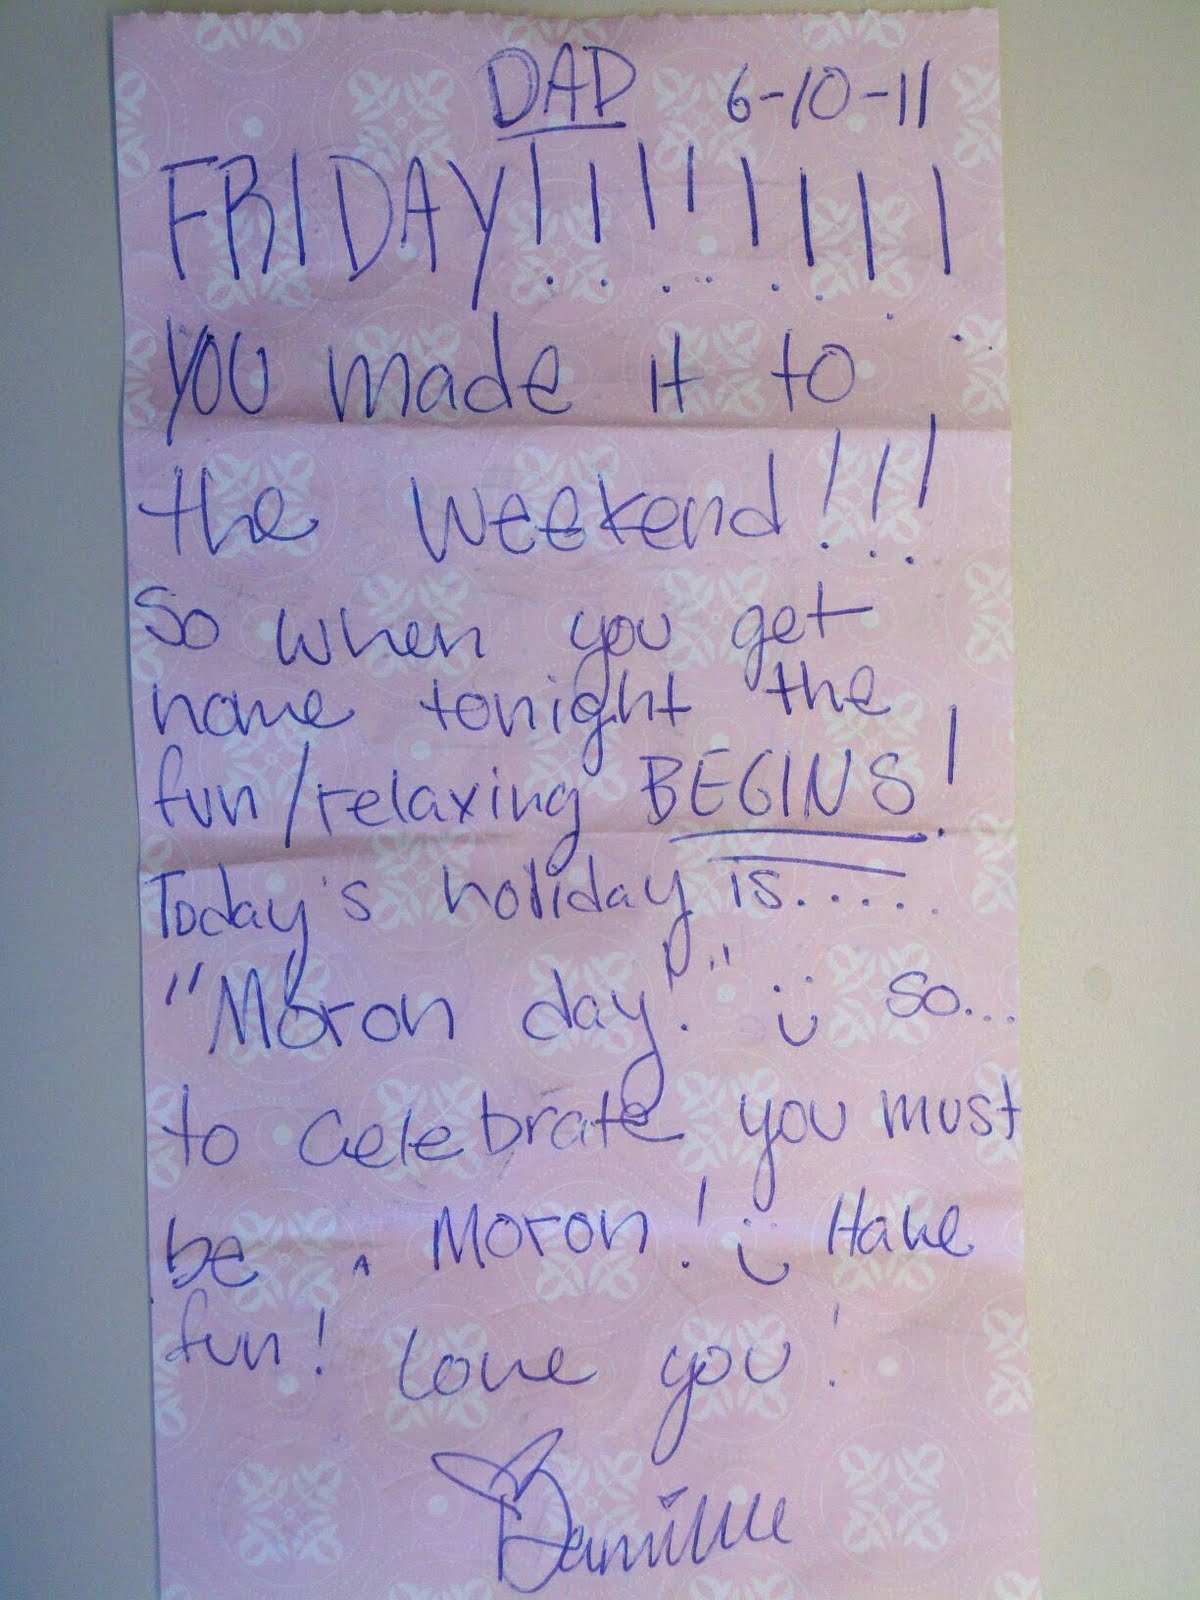 DAD 6-10-11
FRIDAY!!!!!!!!!
you made it to
the weekend!!!
So when you get
home tonight the
fun/relaxing BEGINS!
Today's holiday is.....
"Moron day!" :) so...
to celebrate you must
be a moron! :) Have
fun! Love you!
Danielle